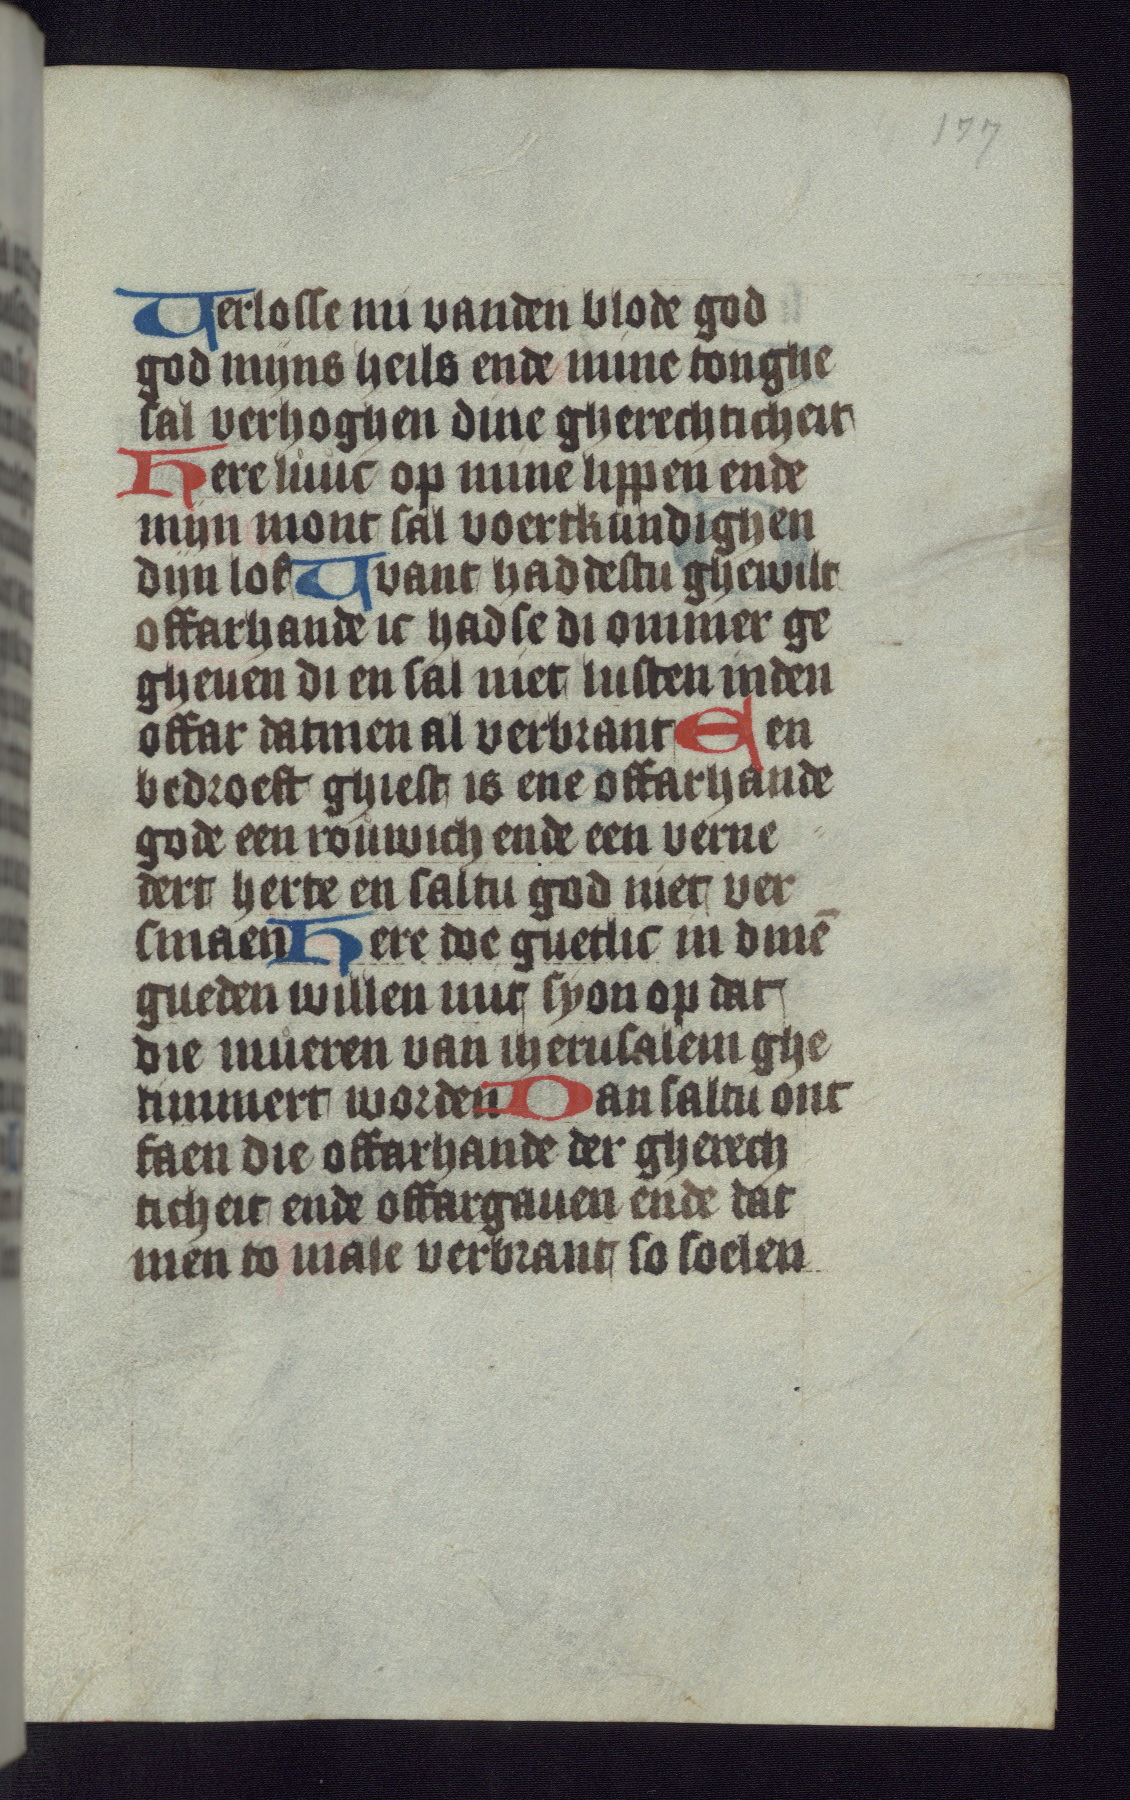 177
Verlosse mi vanden blode god
god mijns heils ende mine tonghe
sal verhoghen dine gherechticheit
Here luuc op mine lippen ende
mijn mont sal voertkundighen
dijn lof Vvant haddestu ghewilt
offarhande ic had se di ommer ge
gheuen di en sal niet lusten inden
offar datmen al verbrant Een
bedroeft ghiest is ene offarhande
gode een rouwich ende een verne
dert herte en saltu god niet ver
smaen Here doe guetlic in dinē
gueden willen uut syon op dat
die mueren van iherusalem ghe
timmert worden Dan saltu ont
faen die offarhande der gherech
ticheit ende offargauen ende dat
men to male verbrant so soelen